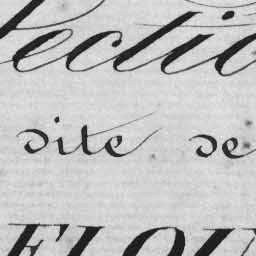 Sectio
dite de
FLOU